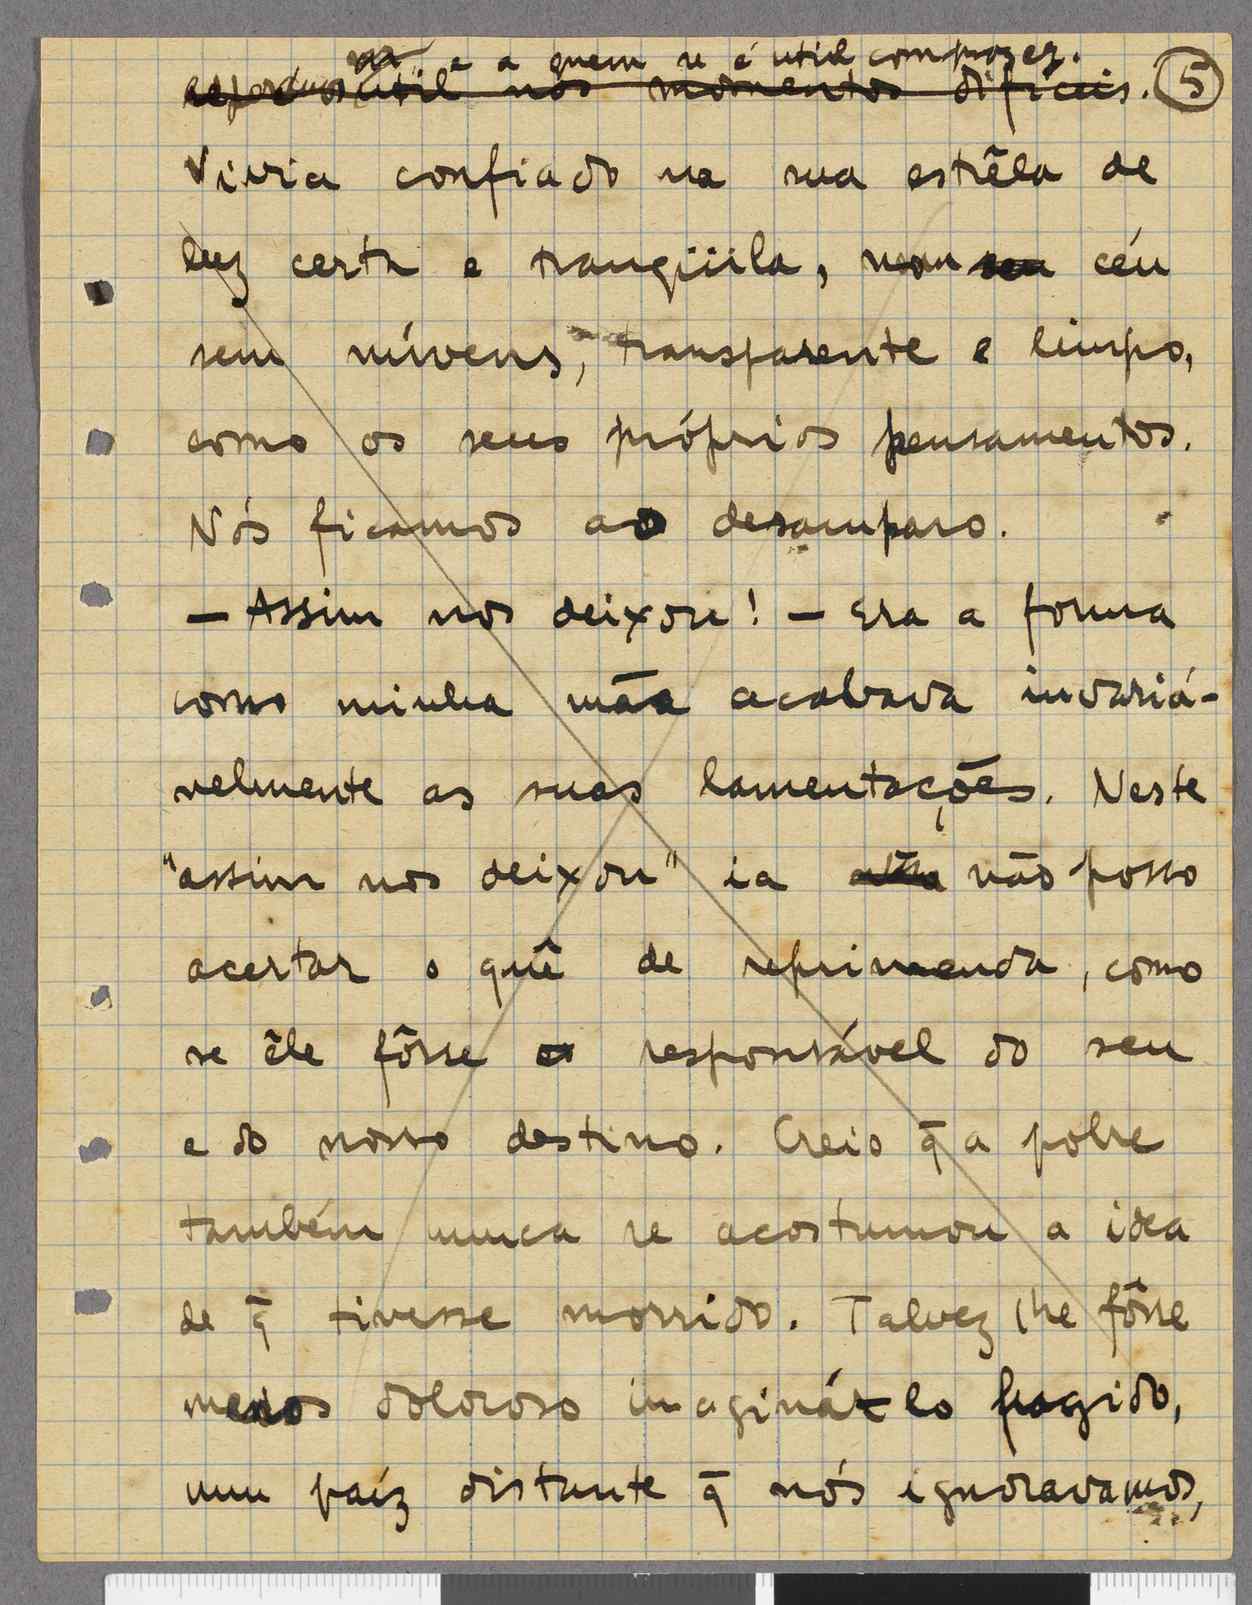 e a quem se é util compraz eg.
util nos momentos dificeis. 5
Vivia confiado na sua estrêla de
luz certa e tranqüila, num seu céu
sem núvens, transparente e limpo,
como os seus próprios pensamentos.
Nós ficamos ao desamparo.
— Assim nos deixou! — Era a forma
como minha mãe acabava invariá-
velmente as suas lamentações. Neste
"assim nos deixou" ia não posso
acertar o quê de reprimenda, como
se êle fôsse responsável do seu
e do nosso destino. Creio q̄ a pobre
também nunca se acostumou a idea
de q̄ tivesse morrido. Talvez lhe fôsse
menos doloroso imaginá-lo fugido,
num paíz distante q̄ nós ignoravamos,